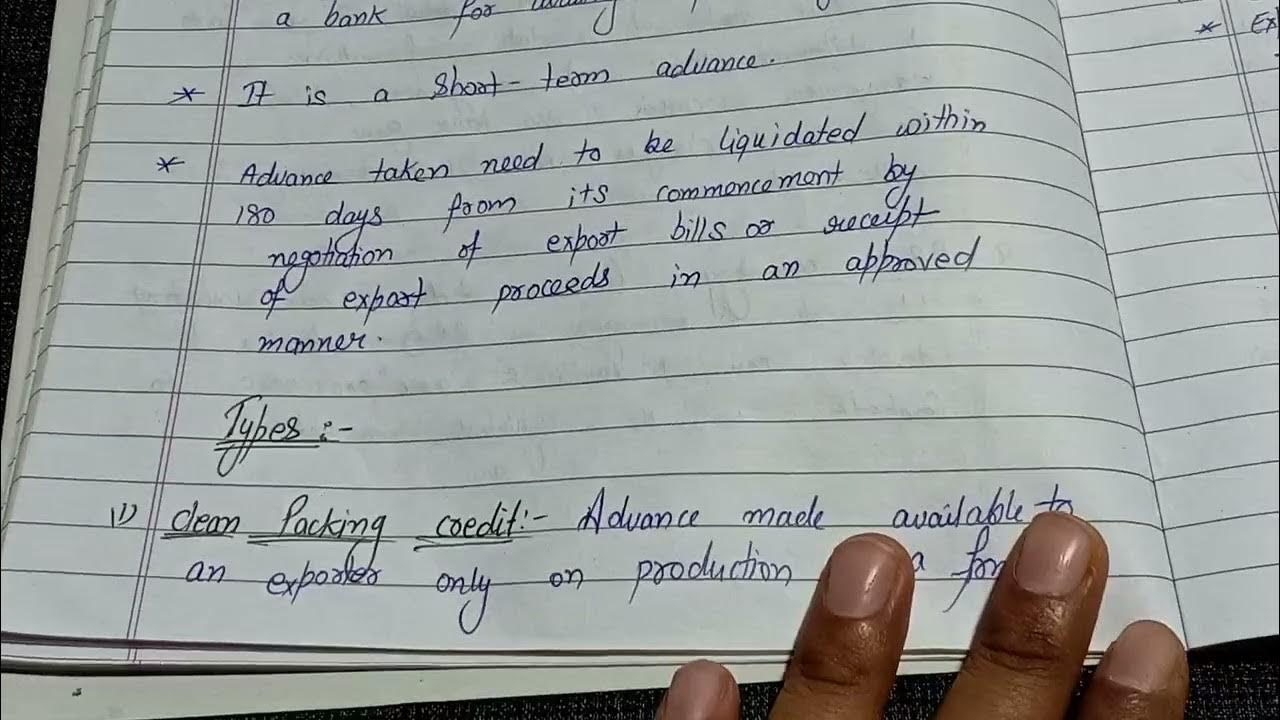 a bank for
* It is a short-term advance.
* Advance taken need to be liquidated within
180 days from its commencement by
negotiation of export bills or receipt
of export proceeds in an approved
manner.
Types :-
1) Clean Packing credit:- Advance made available to
an exporter only on production a
* Ex